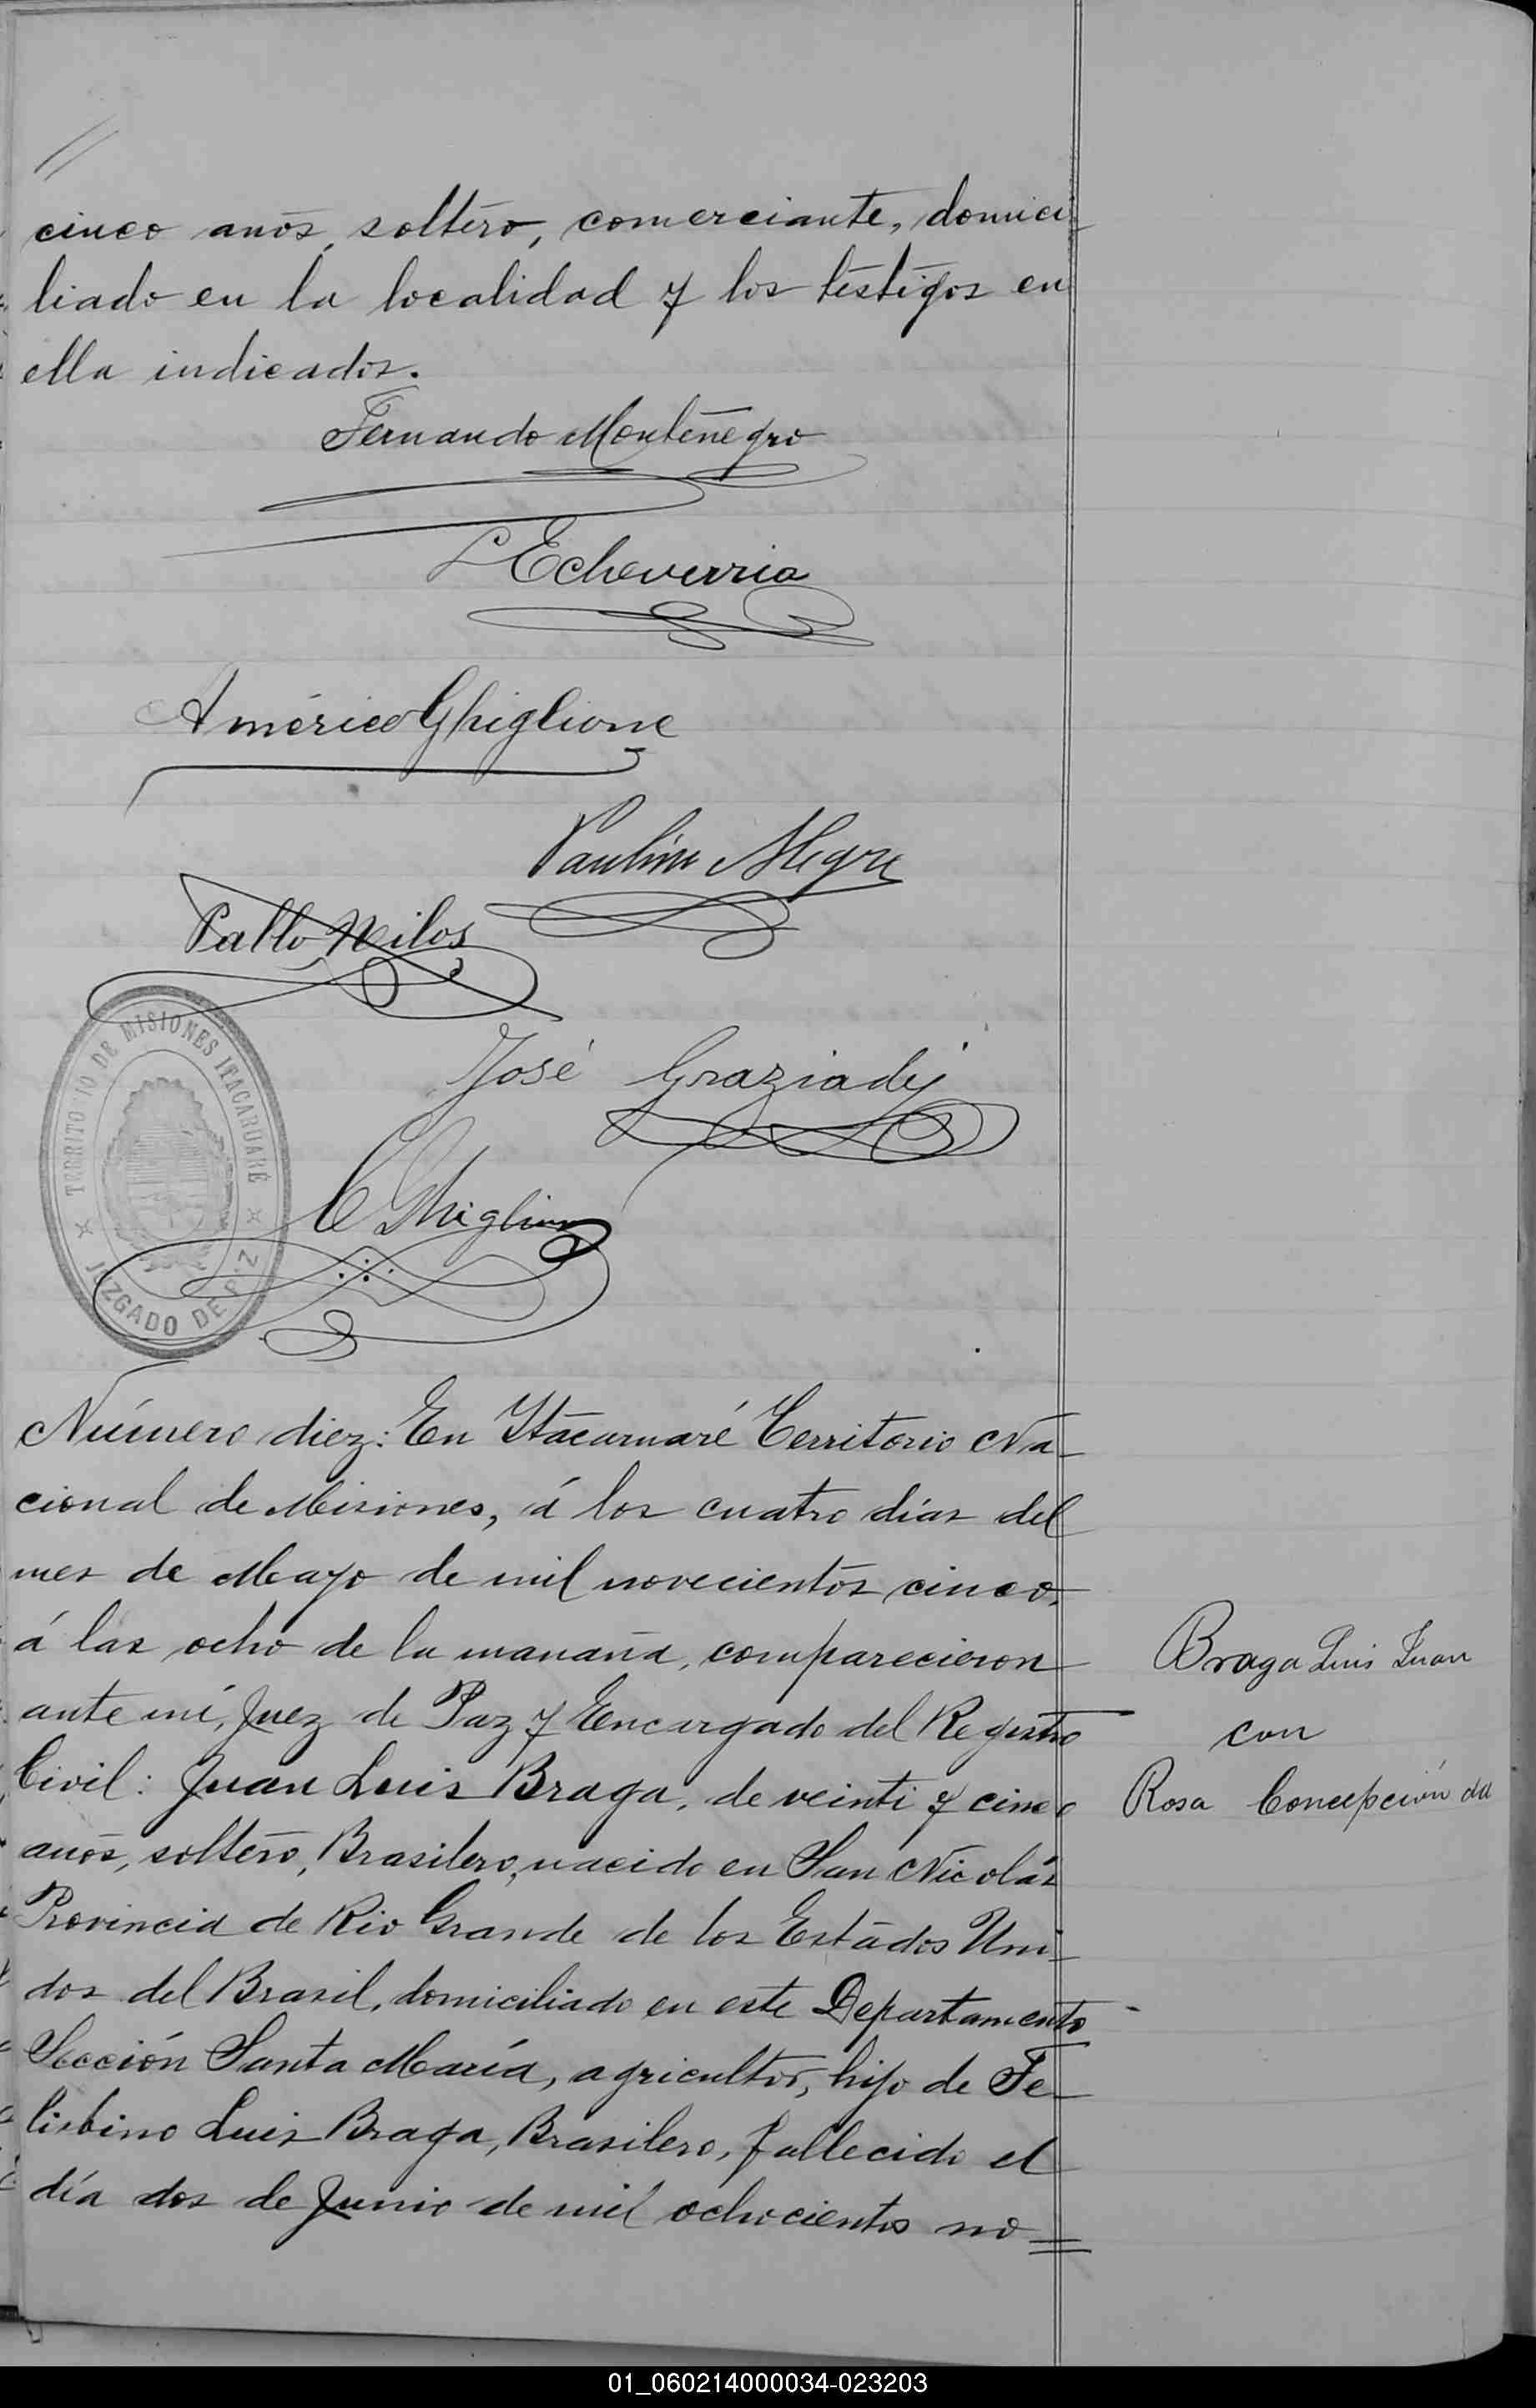 //
cinco años, soltero, comerciante, domici
liado en la localidad y los testigos en
ella indicados.
Fernando Montenegro
L Echeverria
Américo Ghiglione
Paulino Alegre
Pablo Milos
TERRITORIO DE MISIONES ITACARUARÉ
JUZGADO DE PAZ
José Graziady
C Ghiglione
Número diez: En Itacaruaré Territorio Na-
cional de Misiones, á los cuatro días del
mes de Mayo de mil novecientos cinco,
á las ocho de la mañana, comparecieron
ante mí, Juez de Paz y Encargado del Registro
Civil: Juan Luis Braga, de veinti y cinco
años, soltero, Brasilero, nacido en San Nicolás
Provincia de Rio Grande de los Estados Uni-
dos del Brasil, domiciliado en este Departamento
Sección Santa María, agricultor, hijo de Fe-
lisbino Luis Braga, Brasilero, fallecido el
día dos de Junio de mil ochocientos no
Braga Luis Juan
con
Rosa Concepción da
01_060214000034-023203